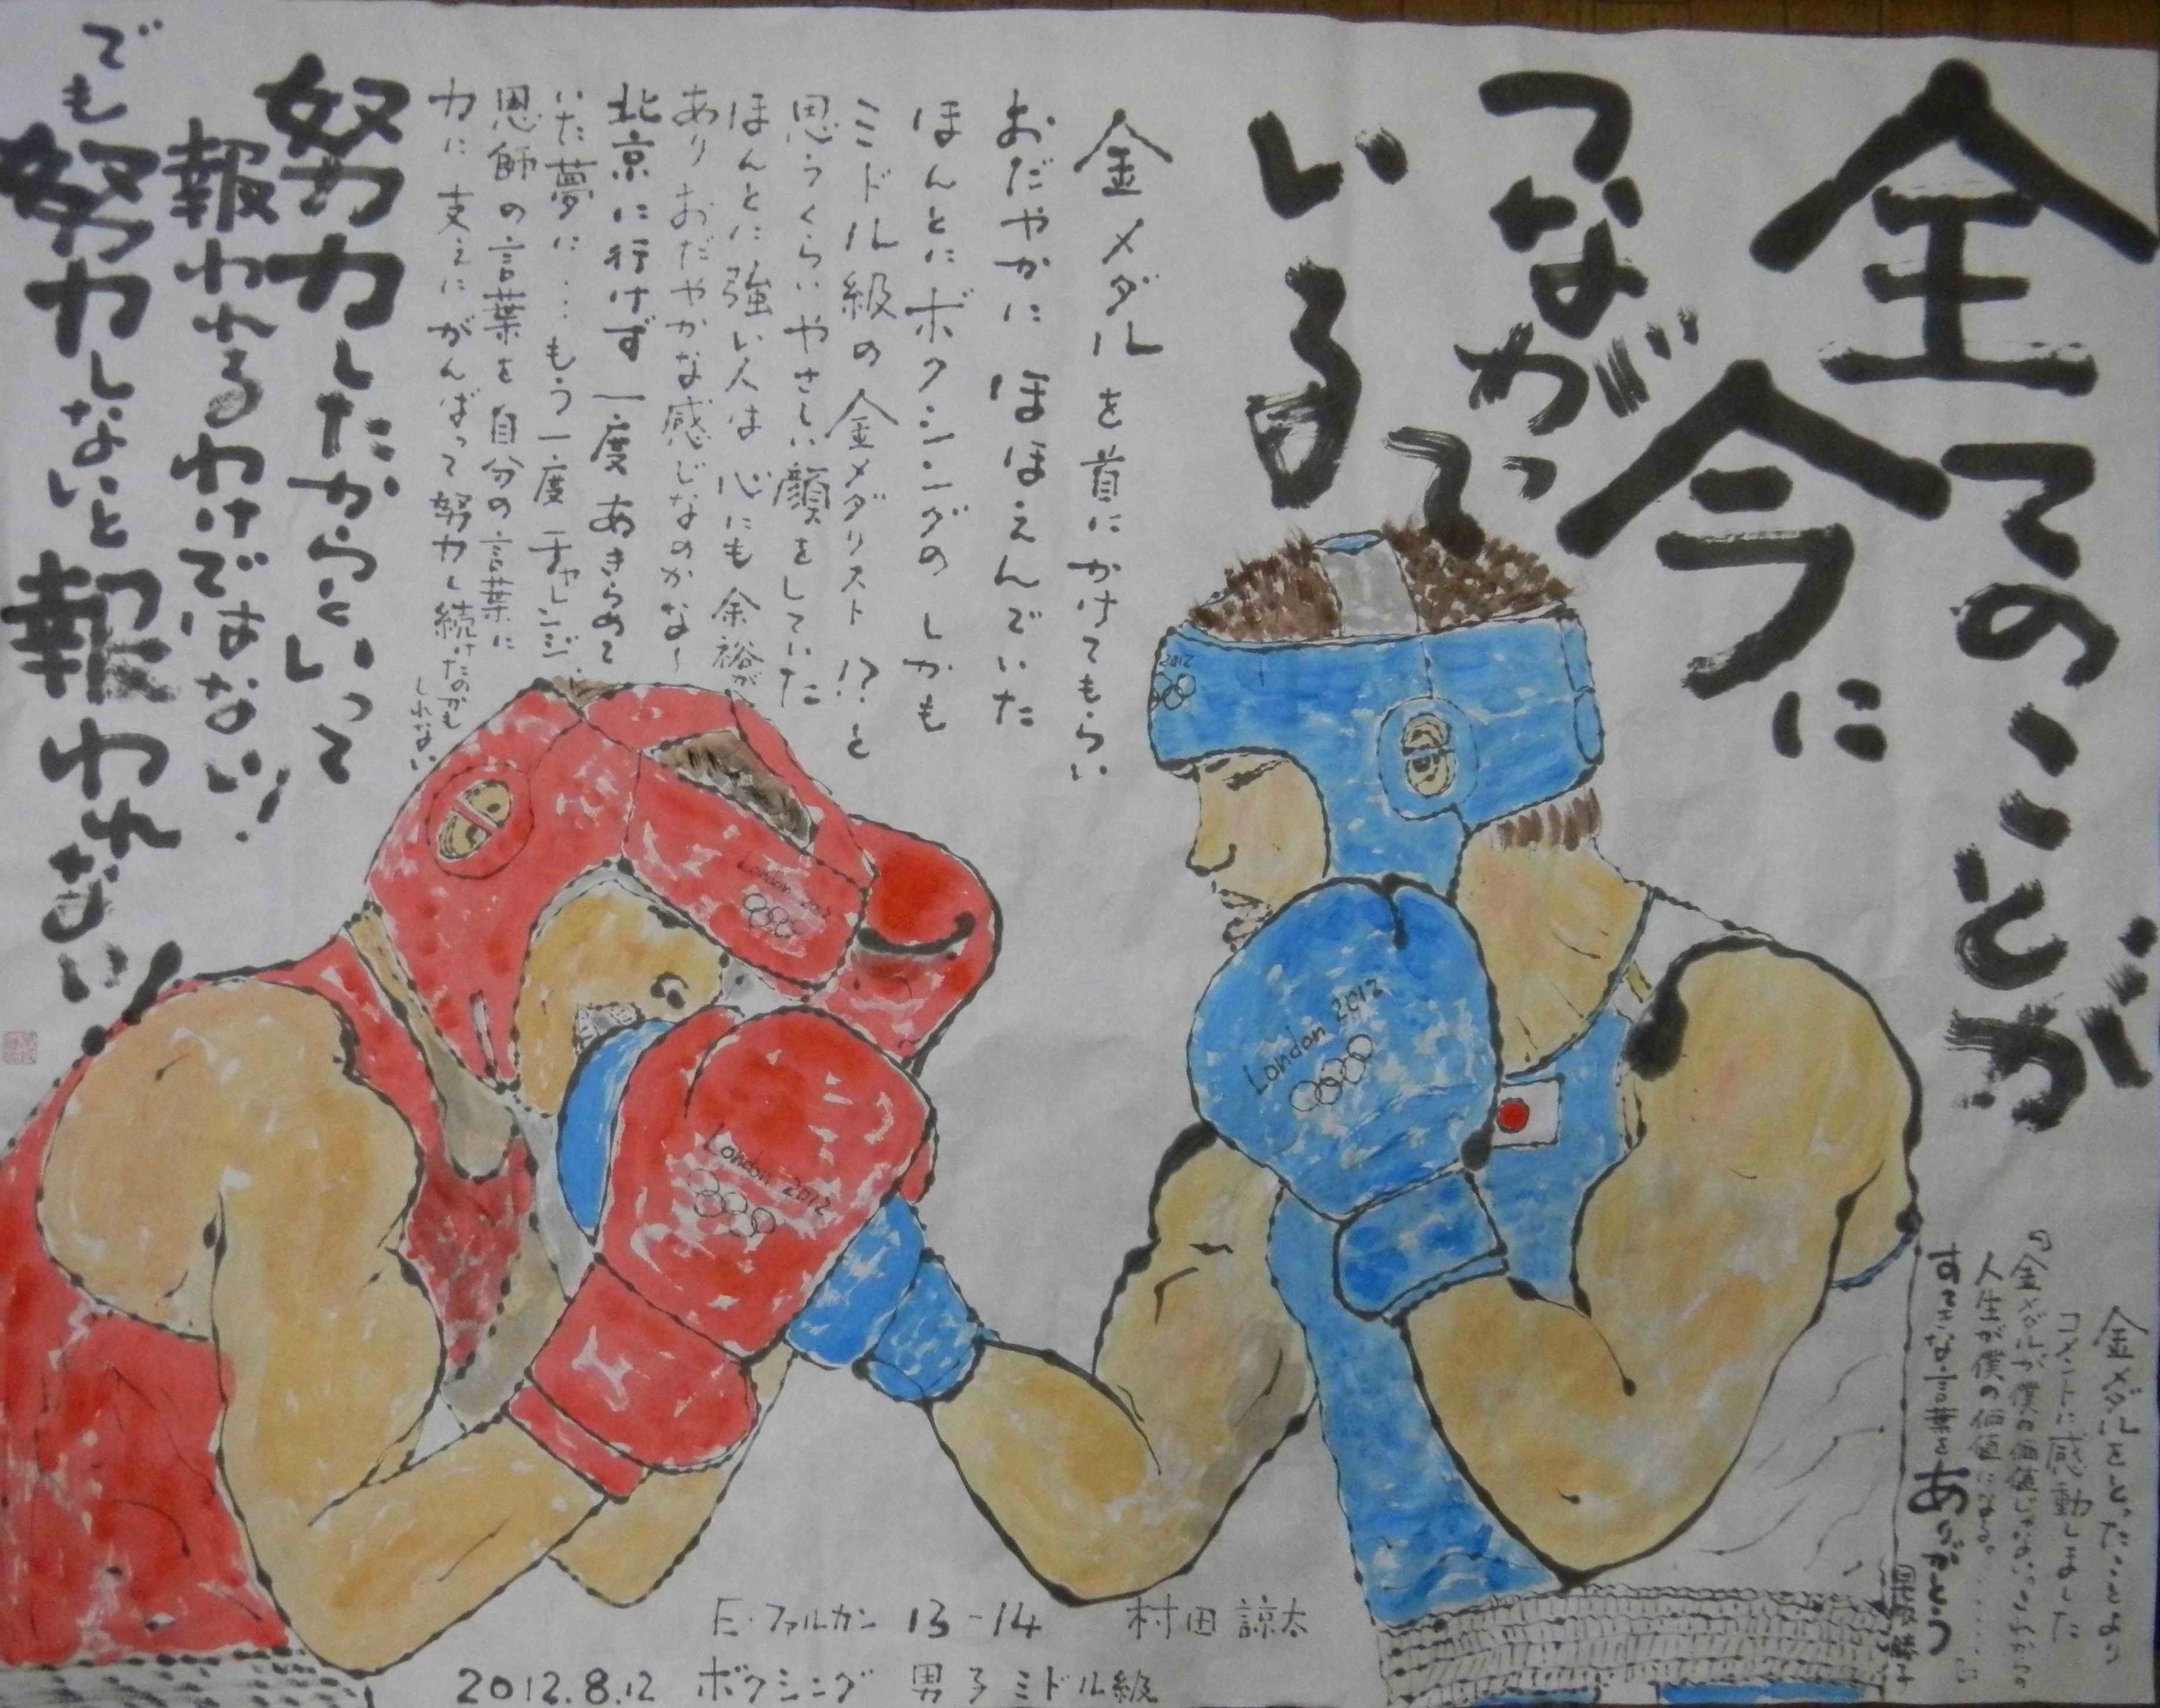 全てのことが
今に
つながって
いる
金メダルを首にかけてもらい
おだやかにほほえんでいた
ほんとにボクシングのしかも
ミドル級の金メダリスト!?と
思うくらいやさしい顔をしていた
ほんとに強い人は心にも余裕が
ありおだやかな感じなのかな〜
北京に行けず一度あきらめて
いた夢に…もう一度チャレンジ、
恩師の言葉を自分の言葉に
力に支えにがんばって努力し続けたのかも
しれない
努力したからといって
報われるわけではない!
でも努力しないと報われない!
2012
London 2012
London 2012
London 2012
金メダルをとったことより
コメントに感動しました
『金メダルが僕の価値じゃない これからの
人生が僕の価値になる。……』
すてきな言葉をありがとう
E・ファルカン 13-14 村田諒太
2012.8.12 ボクシング 男子ミドル級